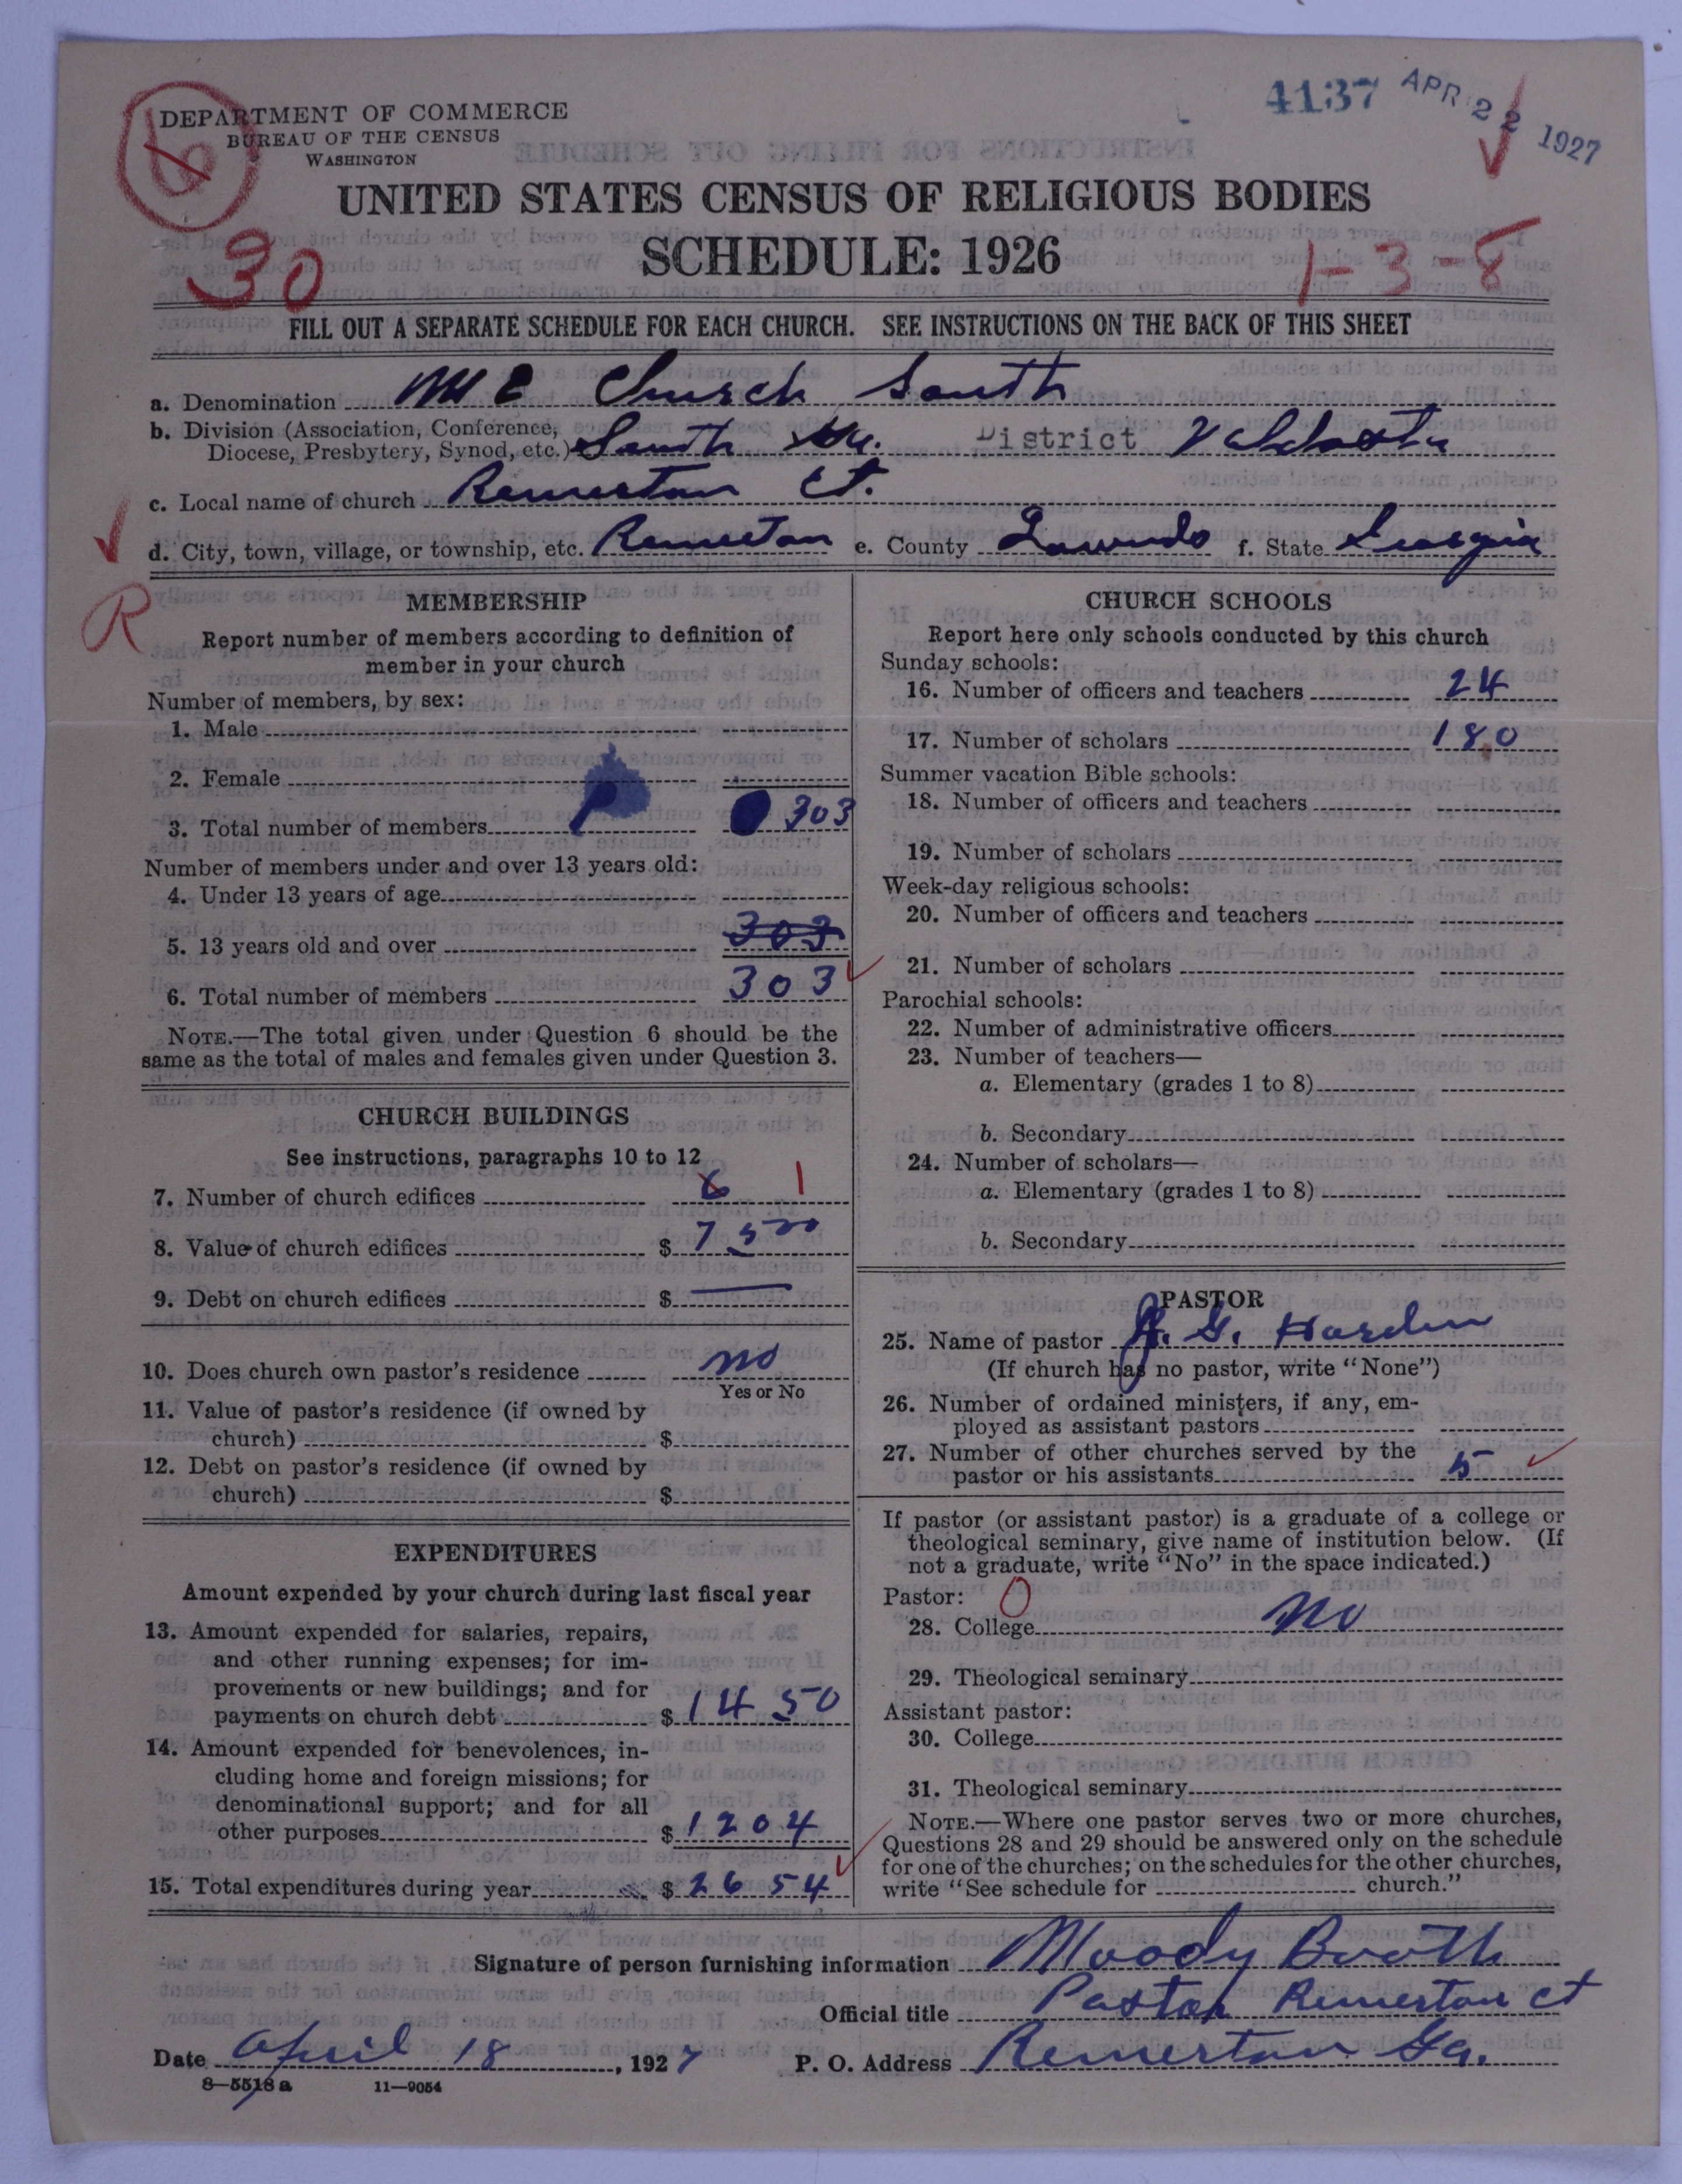 DEPARTMENT OF COMMERCE
BUREAU OF THE CENSUS
WASHINGTON
4137 APR 22 1927
UNITED STATES CENSUS OF RELIGIOUS BODIES
SCHEDULE: 1926
30
1-3-8
FILL OUT A SEPARATE SCHEDULE FOR EACH CHURCH. SEE INSTRUCTIONS ON THE BACK OF THIS SHEET
a. Denomination M E Church South
b. Division (Association, Conference, Diocese, Presbytery, Synod, etc.) South Ga. District Valdosta
c. Local name of church Remerton Ct.
d. City, town, village, or township, etc. Remerton e. County Lowndes f. State Georgia
R
MEMBERSHIP
Report number of members according to definition of
member in your church
Number of members, by sex:
1. Male
2. Female
3. Total number of members 303
Number of members under and over 13 years old:
4. Under 13 years of age
5. 13 years old and over 303
6. Total number of members 303
NOTE.—The total given under Question 6 should be the
same as the total of males and females given under Question 3.
CHURCH BUILDINGS
See instructions, paragraphs 10 to 12
7. Number of church edifices 6 1
8. Value of church edifices $ 7500
9. Debt on church edifices $ —
10. Does church own pastor's residence no
Yes or No
11. Value of pastor's residence (if owned by
church) $
12. Debt on pastor's residence (if owned by
church) $
EXPENDITURES
Amount expended by your church during last fiscal year
13. Amount expended for salaries, repairs,
and other running expenses; for im-
provements or new buildings; and for
payments on church debt $ 1450
14. Amount expended for benevolences, in-
cluding home and foreign missions; for
denominational support; and for all
other purposes $ 1204
15. Total expenditures during year $ 2654
CHURCH SCHOOLS
Report here only schools conducted by this church
Sunday schools:
16. Number of officers and teachers 24
17. Number of scholars 180
Summer vacation Bible schools:
18. Number of officers and teachers
19. Number of scholars
Week-day religious schools:
20. Number of officers and teachers
21. Number of scholars
Parochial schools:
22. Number of administrative officers
23. Number of teachers—
a. Elementary (grades 1 to 8)
b. Secondary
24. Number of scholars—
a. Elementary (grades 1 to 8)
b. Secondary
PASTOR
25. Name of pastor G. Harden
(If church has no pastor, write "None")
26. Number of ordained ministers, if any, em-
ployed as assistant pastors
27. Number of other churches served by the
pastor or his assistants 5
If pastor (or assistant pastor) is a graduate of a college or
theological seminary, give name of institution below. (If
not a graduate, write "No" in the space indicated.)
Pastor: O
28. College no
29. Theological seminary
Assistant pastor:
30. College
31. Theological seminary
NOTE.—Where one pastor serves two or more churches,
Questions 28 and 29 should be answered only on the schedule
for one of the churches; on the schedules for the other churches,
write "See schedule for church."
Signature of person furnishing information Moody Booth
Official title Pastor Remerton Ct
Date April 18, 1927 P. O. Address Remerton Ga.
8—5518 a 11—9054